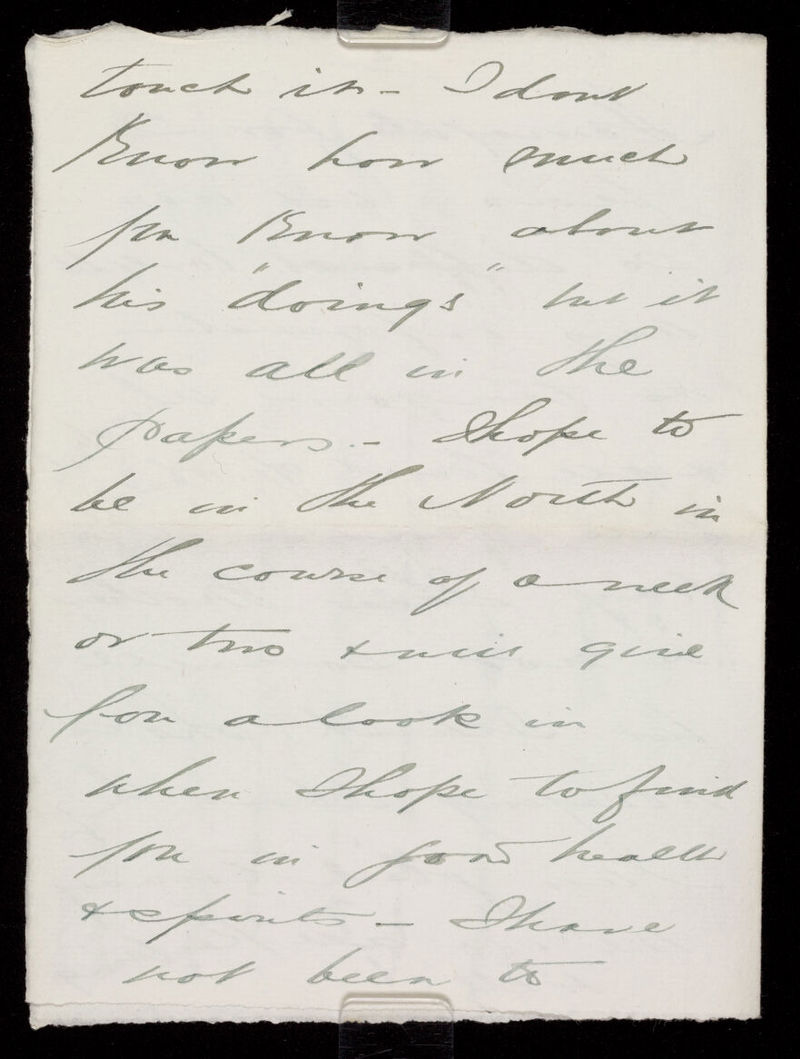 touch it - I dont
Know how much
you Know about
his "doings" but it
was all in the
papers. - I hope to
be in the North in
the course of a week
or two & will give
you a look in
when I hope to find
you in good health
& spirits - I have
not been to